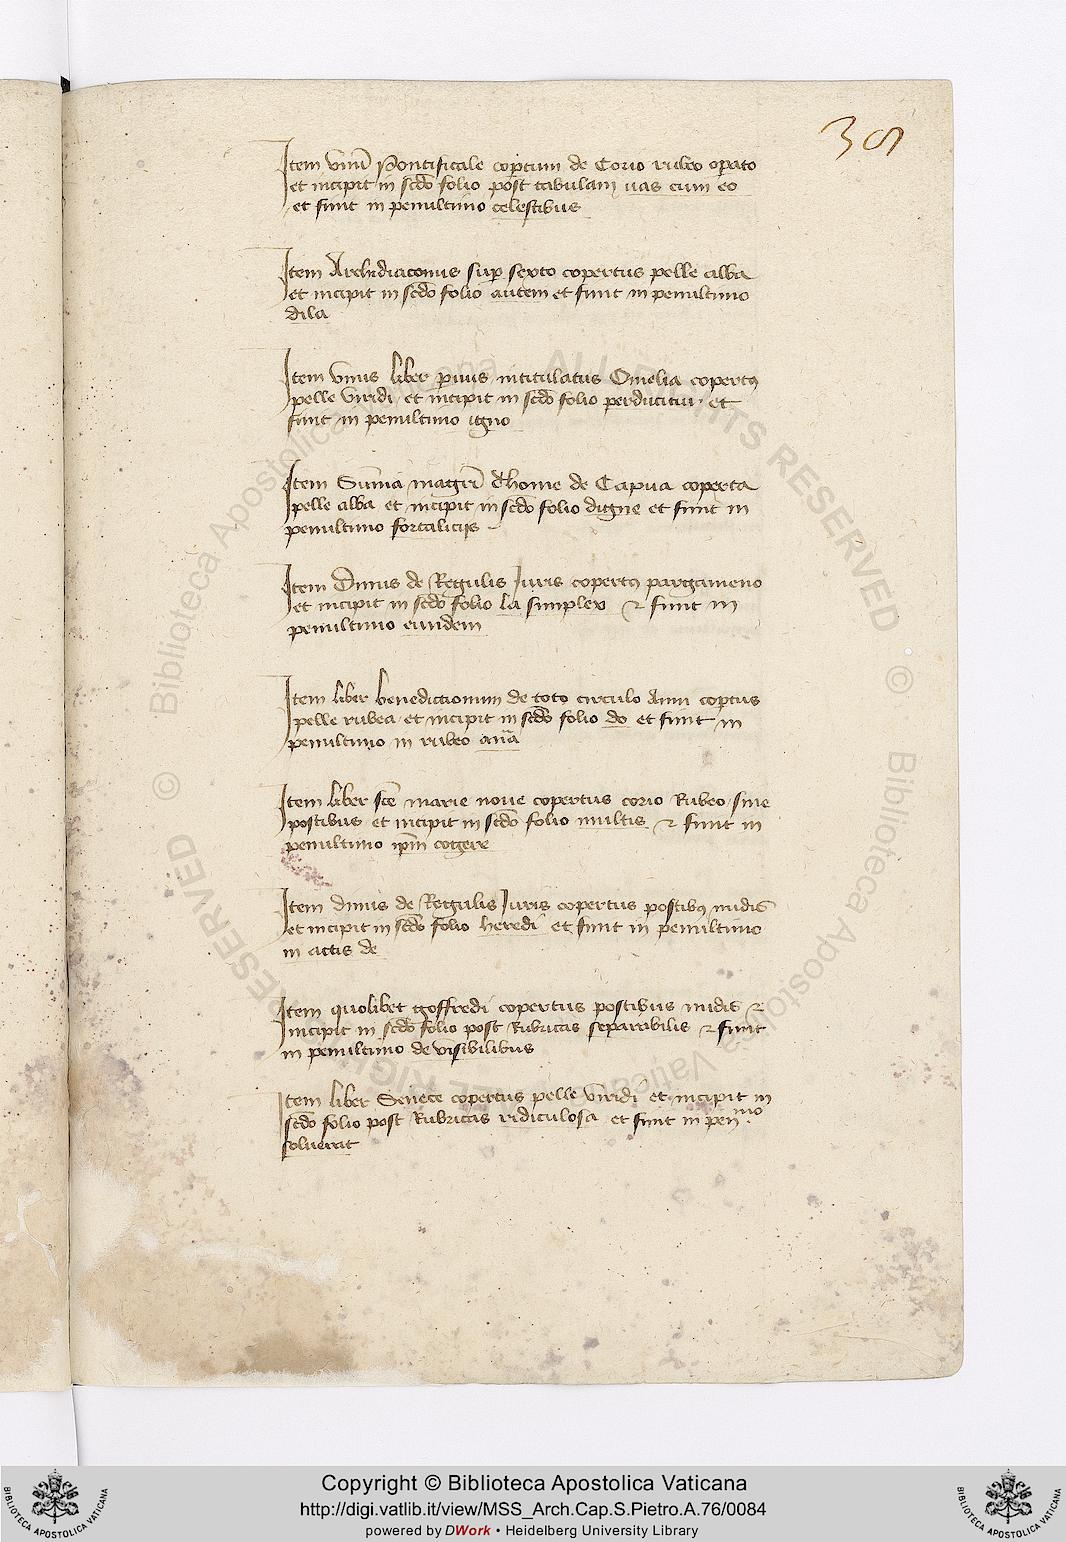 38
Item unu̅ Pontificale cop̱tum de Corio rubeo op̱ato
et incipit in sc̅do folio post tabulam uas cum eo
et finit in penultimo celestibus
Item Archidiaconus sup̱ sexto copertus pelle alba
et incipit in sc̅do folio autem et finit in penultimo
dila
Item unus liber p̱uus intitulatus Omelia copertꝰ
pelle viridi et incipit in sc̅do folio perducitur et
finit in penultimo igno
Item Su̅ma magr̅i thome de Capua coperta
pelle alba et incipit in sc̅do folio digne et finit in
penultimo fortalicijs
Item Dinus de Regulis Iuris copertꝰ pargameno
et incipit in sc̅do folio la simplex ⁊ finit in
penultimo eiusdem
Item liber benedictionum de toto circulo Anni cop̱tus
pelle rubea et incipit in sc̅do folio do et finit in
penultimo in rubeo
Item liber sc̅e marie noue copertus corio Rubeo sine
postibus et incipit in sc̅do folio multis ⁊ finit in
penultimo ip̅m cogere
Item dinus de Regulis Iuris copertus postibꝰ nudis
et incipit in sc̅do folio heredi et finit in penultimo
in actis de
Item quolibet goffredi copertus postibus nudis ⁊
incipit in sc̅do folio post Rubricas separabilis ⁊ finit
in penultimo de visibilibus
Item liber Senece copertus pelle viridi et incipit in
sc̅do folio post Rubricas ridiculosa et finit in penᵐᵒ
soluerat
© Biblioteca Apostolica Vaticana ALL RIGHTS RESERVED
© Biblioteca Apostolica Vaticana ALL RIGHTS RESERVED
BIBLIOTECA APOSTOLICA VATICANA
Copyright © Biblioteca Apostolica Vaticana
http://digi.vatlib.it/view/MSS_Arch.Cap.S.Pietro.A.76/0084
powered by DWork • Heidelberg University Library
BIBLIOTECA APOSTOLICA VATICANA